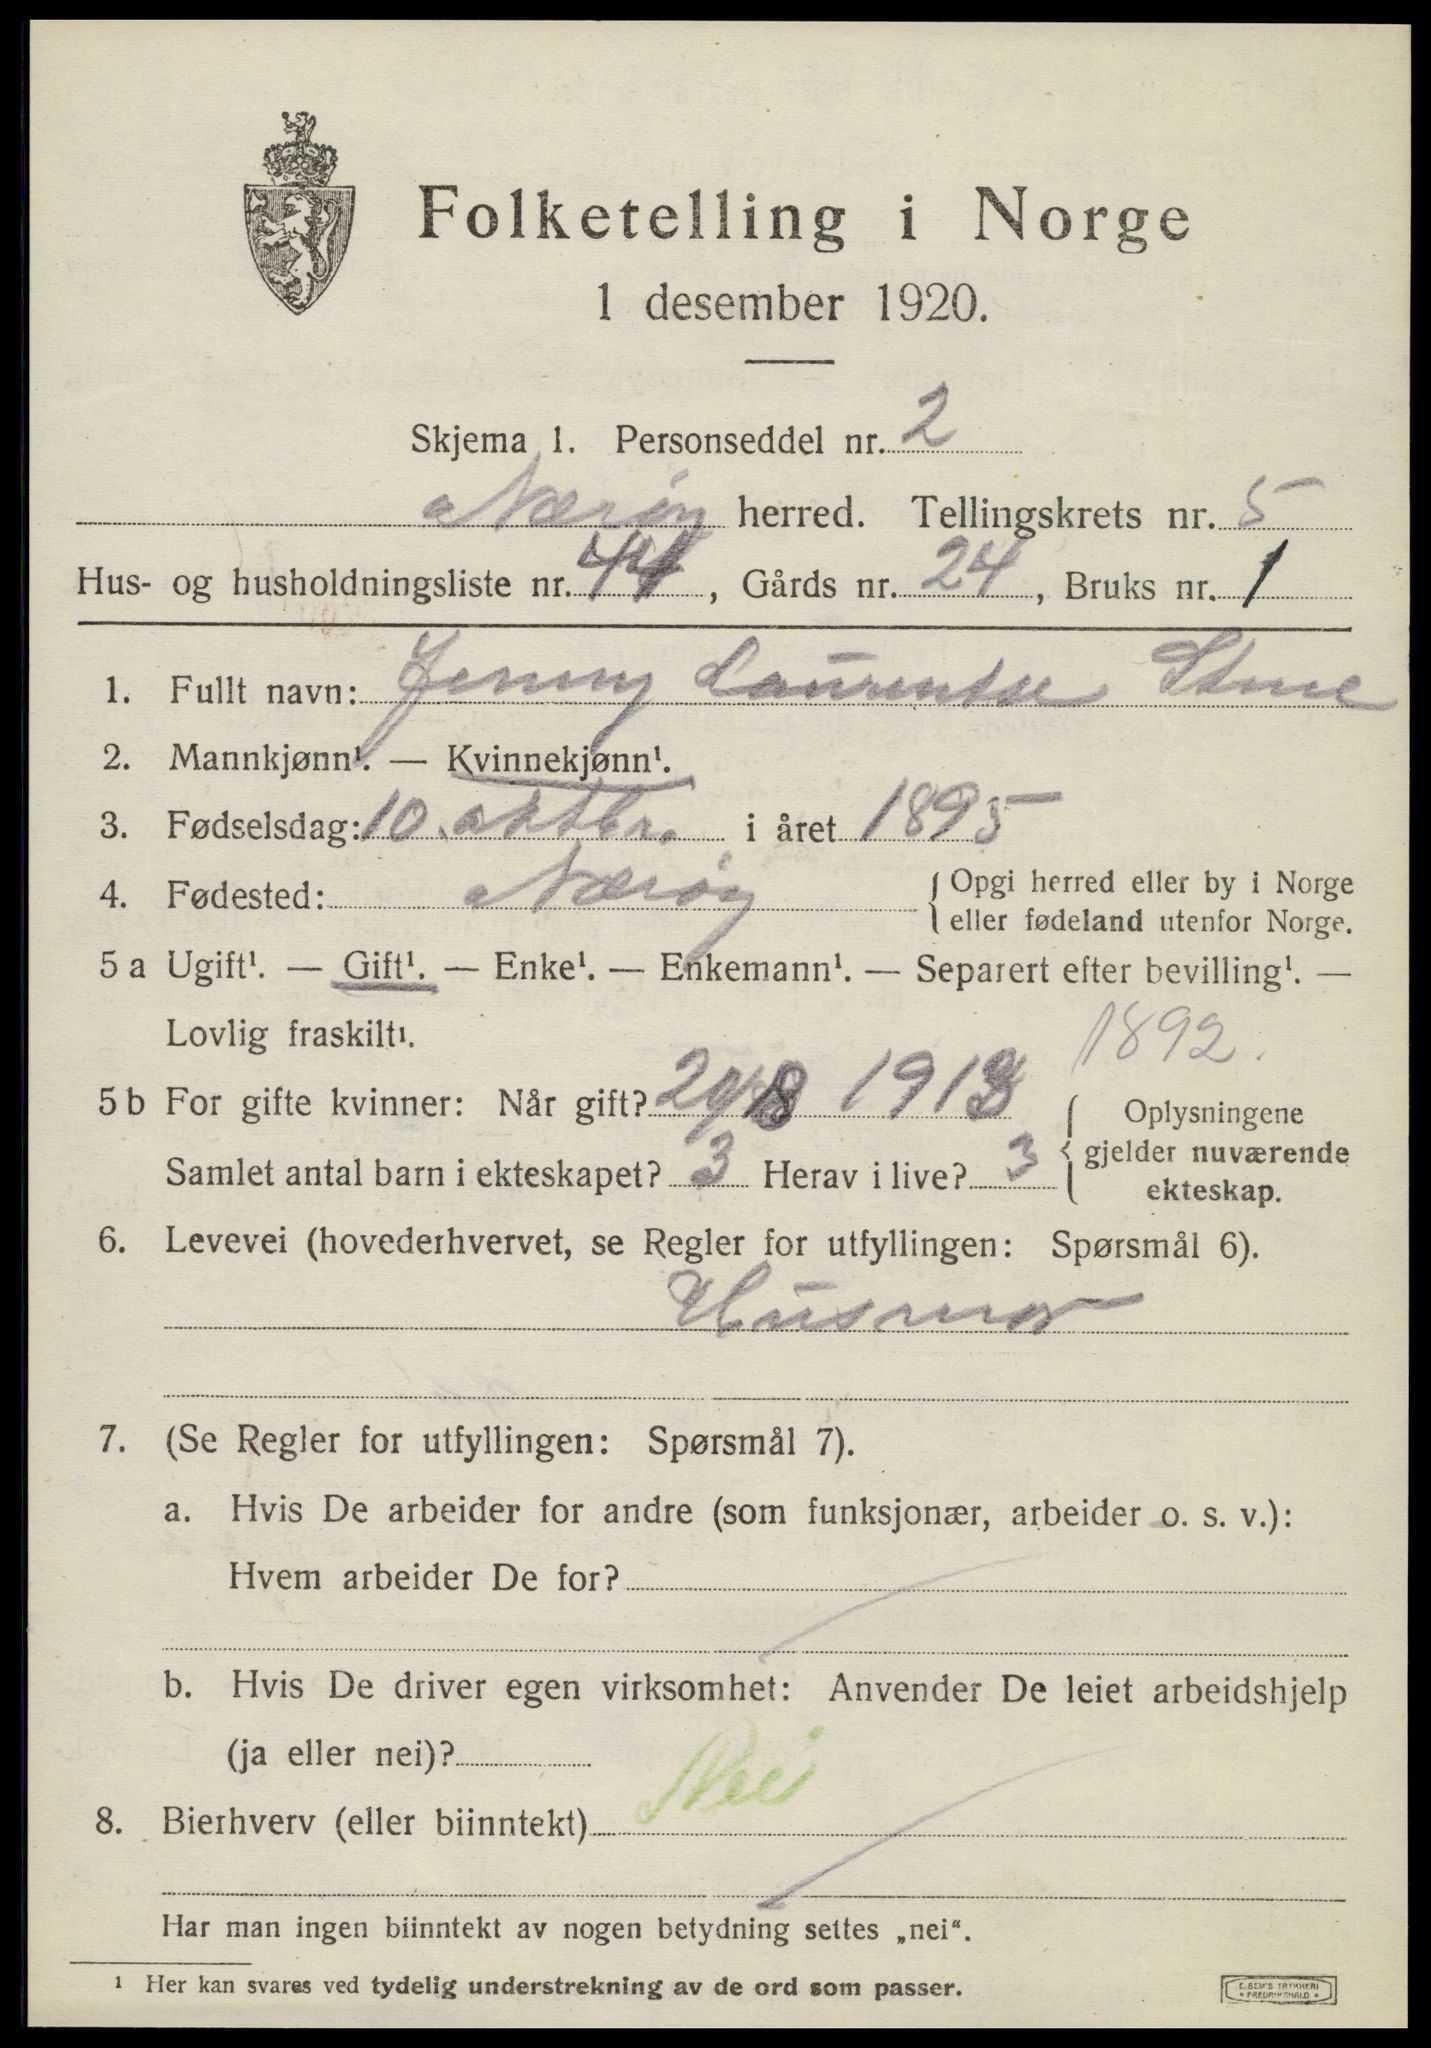 Folketelling i Norge
1 desember 1920.
Skjema 1. Personseddel nr. 2
Nærøy herred. Tellingskrets nr. 5
Hus- og husholdningsliste nr. 44, Gårds nr. 24, Bruks nr. 1
1. Fullt navn: Jenny Laurentse
2. Mannkjønn¹. — Kvinnekjønn¹.
3. Fødselsdag: 10. oktbr. i året 1895
4. Fødested: Nærøy { Opgi herred eller by i Norge
eller fødeland utenfor Norge.
5 a Ugift¹. — Gift¹. — Enke¹. — Enkemann¹. — Separert efter bevilling¹. —
Lovlig fraskilt¹.
1892.
5 b For gifte kvinner: Når gift? 191
Samlet antal barn i ekteskapet? 3 Herav i live? 3
{ Oplysningene
gjelder nuværende
ekteskap.
6. Levevei (hovederhvervet, se Regler for utfyllingen: Spørsmål 6).
Husmor
7. (Se Regler for utfyllingen: Spørsmål 7).
a. Hvis De arbeider for andre (som funksjonær, arbeider o. s. v.):
Hvem arbeider De for?
b. Hvis De driver egen virksomhet: Anvender De leiet arbeidshjelp
(ja eller nei)?
8. Bierhverv (eller biinntekt) Nei
Har man ingen biinntekt av nogen betydning settes „nei“.
¹ Her kan svares ved tydelig understrekning av de ord som passer.
E. SEM'S TRYKKERI
* FREDRIKSHALD *